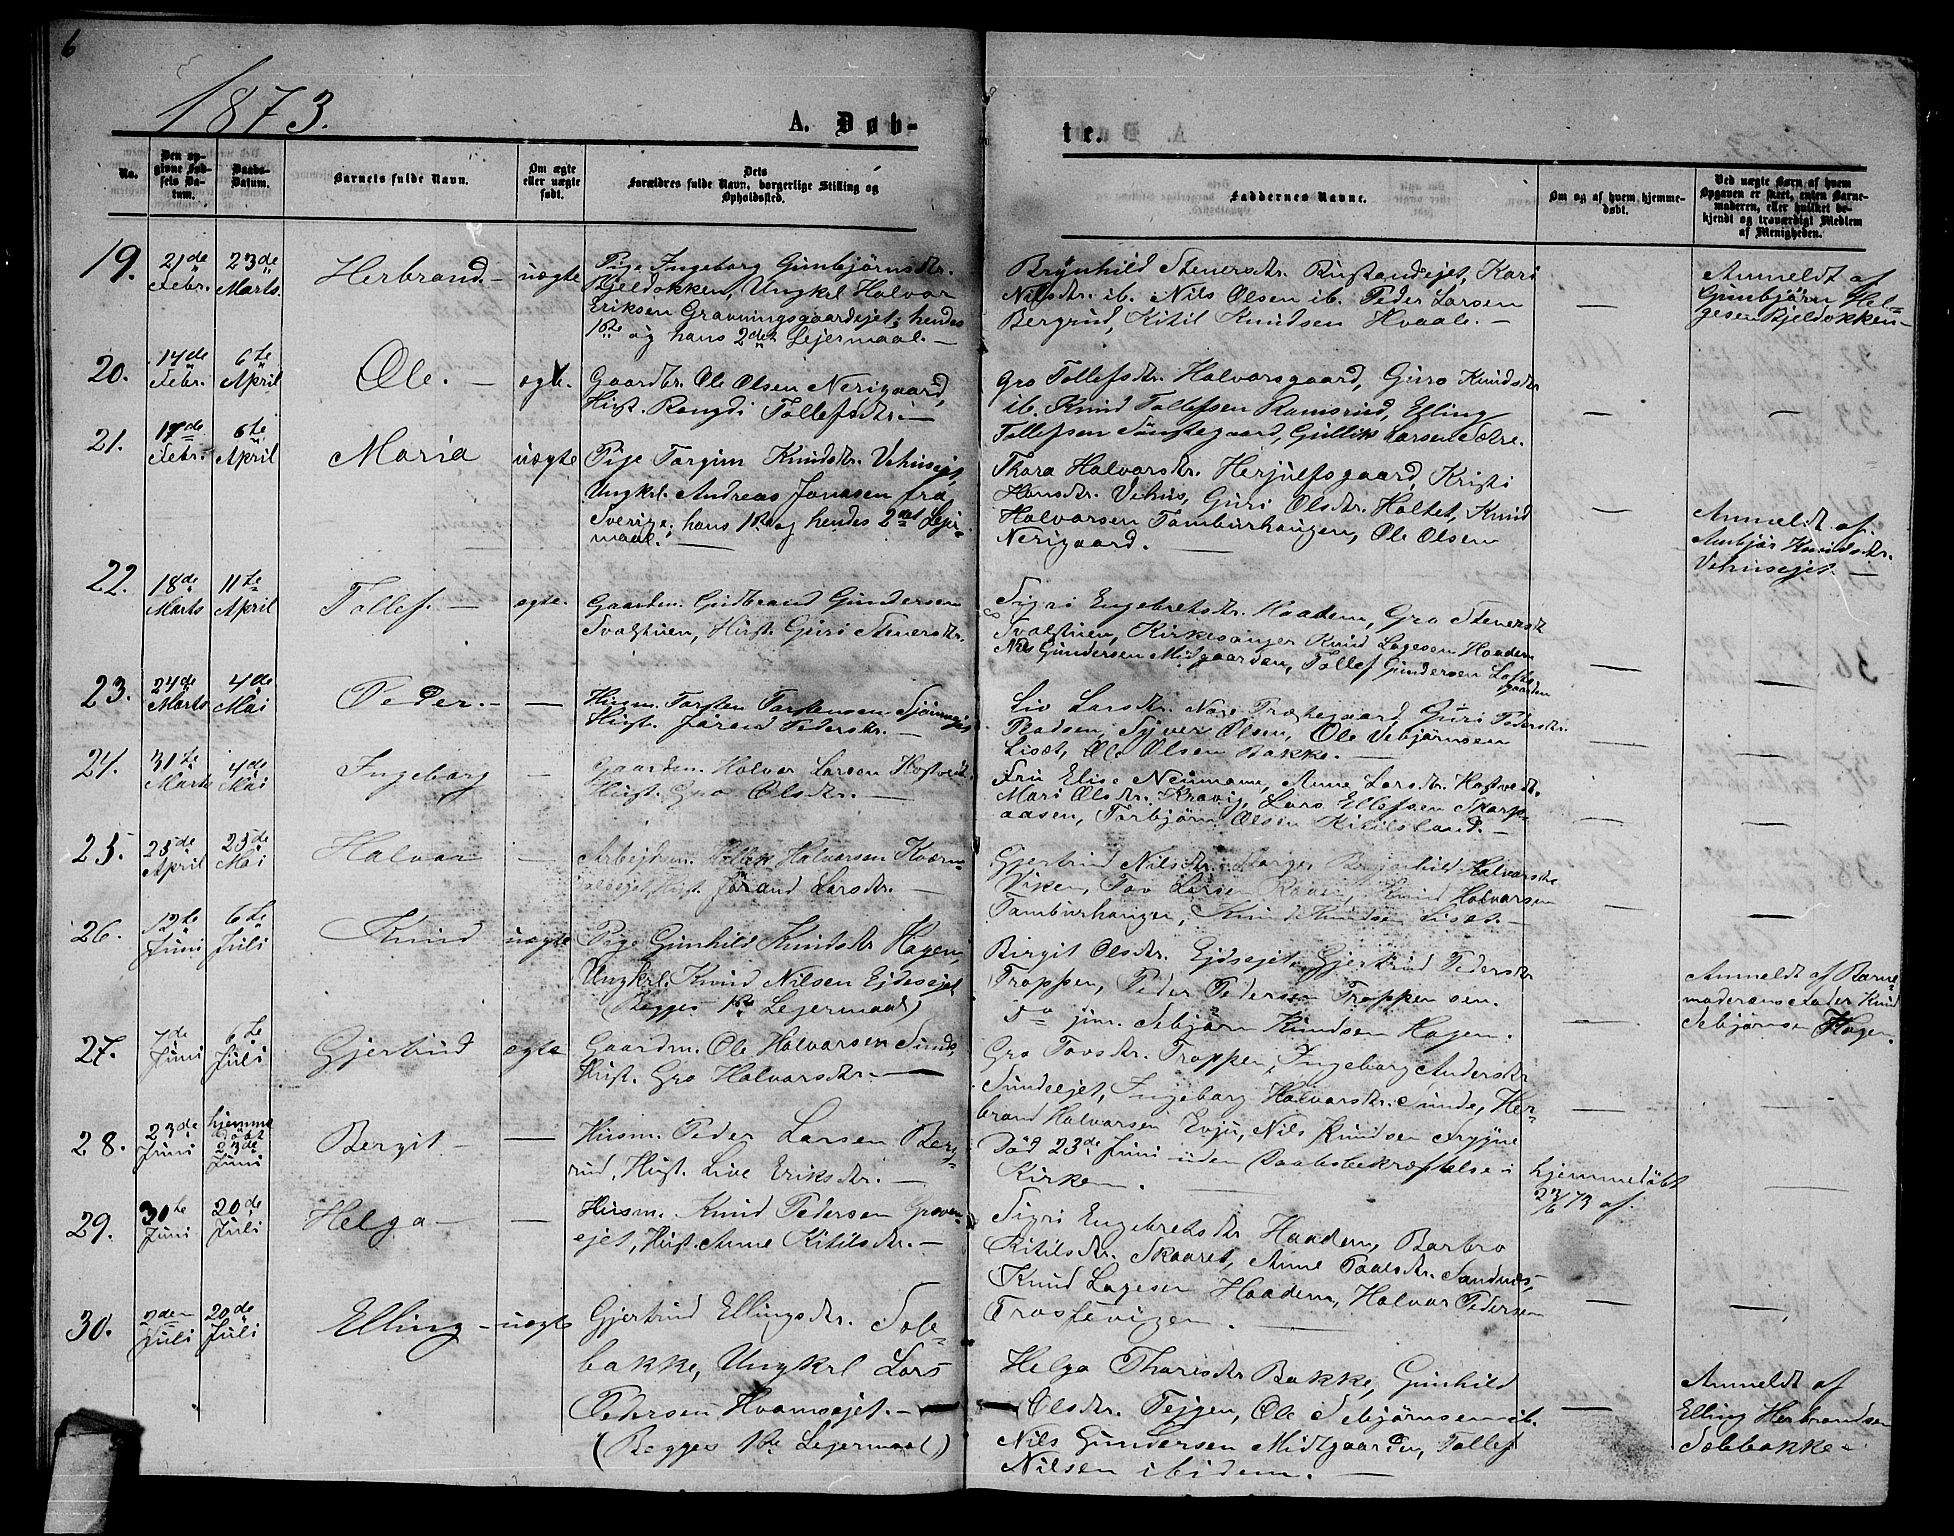 6
1873.
A. Døb-
te.
No.
Den op-
givne Fød-
sels Da-
tum.
Daabs-
Datum.
Barnets fulde Navn.
Om ægte
eller uægte
født.
Dets
Forældres fulde Navn, borgerlige Stilling og
Opholdssted.
Faddernes Navne.
Om og af hvem hjemme-
døbt.
Ved uægte Børn af hvem
Opgaven er skeet, enten Barne-
moderen, eller hvilket be-
kjendt og troværdigt Medlem
af Menigheden.
19.
21de
Febr.
23de
Marts.
Herbrand. –
uægte
Pige Ingeborg Gunbjørnsdtr.
Bjeldokken, Ungkrl Halvor
Eriksen Gravningsgaardejet; hendes
1ste og hans 2det Lejermaal. –
Brynhild Stenersdtr. Rustandejet, Kari
Nilsdtr. ib. Nils Olsen ib. Peder Larsen
Bergrud, Kitil Knudsen Hvaale. –
–
Anmeldt af
Gunbjörn Hel-
gesen Bjeldokken –
20.
14de
Febr.
6te
April
Ole. –
ægte.
Gaardbr. Ole Olsen Nerigaard,
Hust. Rangdi Tollefsdtr. –
Gro Tollefsdtr. Halvorsgaard, Guro Knudsdtr
ib. Knud Tollefsen Ramsrud, Elling
Tollefsen Synstegaard, Gullik Larsen Solre.
–
–
21.
17de
Febr.
6te
April
Maria
uægte
Pige Torgun Knudsdtr. Vehusejet,
Ungkrl. Andreas Jonasen fra
Sverige; hans 1ste og hendes 2det Lejer-
maal. –
Thora Halvorsdtr. Herjulfsgaard, Kristi
Hansdtr. Vehus, Guri Olsdtr. Holtet, Knud
Halvorsen Tamburhaugen, Ole Olsen
Nerigaard. –
–
Anmeldt af
Anbjør Knudsdtr.
Vehusejet. –
22.
18de
Marts
11te
April
Tollef. –
ægte.
Gaardm. Gudbrand Gundersen
Svalstuen, Hust. Guri Stenersdtr.
Sigri Engebretsdtr. Haadem, Gro Stenersdtr
Svalstuen, Kirkesanger Knud Lagesen Haadem
Nils Gundersen Midgaarden, Tollef Gundersen Lofts
gaarden
–
–
23.
24de
Marts
4de
Mai
Peder. –
–
Husm. Torsten Torstensen
Hust. Jörend Pedersdtr. –
Liv Larsdtr. Nore Præstegaard, Guri Pedersdtr.
Syver Olsen, Ole Vebjørnsen
Liset, Ole Olsen Bakke. –
–
–
24.
31te
Marts
4de
Mai
Ingeborg
–
Gaardm. Halvor Larsen Hostvedt
Hust. Gro Olsdtr. –
Fru Elise Neumann, Anne Larsdtr. Hostvedt.
Mari Olsdtr. Kravig, Lars Ellefsen Skarp-
aasen, Torbjörn Olsen Kitilsland. –
–
–
25.
25de
April
25de
Mai
Halvor
–
Arbejdsm. Halvorsen Kværn-
Hust. Jørand Larsdtr. –
Gjertrud Nilsdtr. Brynhild Halvorsdtr
Viken, Tov Larsen Knud Halvorsen
Tamburhaugen, Knud Knudsen Liset. –
–
–
26.
12te
Juni
6te
Juli
Knud
uægte
Pige Gunhild Knudsdtr. Hagen,
Ungkrl. Knud Nilsen Ejdsejet
(Begges 1ste Lejermaal)
Birgit Olsdtr. Ejdsejet, Gjertrud Pedersdtr
Troppen, Peder Pedersen Troppen sen.
do jun. Sebjørn Knudsen Hagen.
–
Anmeldt af Barne-
moderens Fader Knud
Sebjørnsen Hagen.
27.
7de
Juni
6te
Juli
Gjertrud
ægte
Gaardm. Ole Halvorsen Sunde,
Hust. Gro Halvorsdtr. –
Gro Tovsdtr. Troppen, Ingeborg Andersdtr
Sundeejet, Ingeborg Halvorsdtr. Sunde, Her-
brand Halvorsen Evju, Nils Knudsen Frygne
–
–
28.
23de
Juni
hjemme
döbt
23de
Juni
Bergit –
–
Husm. Peder Larsen Berg-
rud, Hust. Live Eriksdtr. –
Död 23de Juni uden Daabsbekræftelse i
Kirken. –
hjemmedöbt
23/6 73 af.
–
29.
30te
Juni
20de
Juli
Helga –
–
Husm. Knud Pedersen Graven-
ejet, Hust. Anne Kitilsdtr. –
Sigri Engebretsdtr Haadem, Barbro
Kitilsdtr. Skaaret, Anne Paalsdtr. Sandnes-
Knud Lagesen Haadem, Halvor Pedersen
Frostevigen. –
–
–
30.
2den
Juli
20de
Juli
Elling –
uægte
Gjertrud Ellingsdtr. Sole-
bakke, Ungkrl Lars
Pedersen Hvamsejet. –
(Begges 1ste Lejermaal)
Helga Thorisdtr Bakke, Gunhild
Olsdtr. Tejgen, Ole Sebjörnsen ib.
Nils Gundersen Midtgaarden, Tollef
Nilsen ibidem. –
–
Anmeldt af
Elling Herbrandsen
Solebakke –